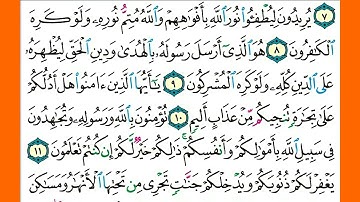 ٧ يُرِيدُونَ لِيُطْفِـُٔوا۟ نُورَ ٱللَّهِ بِأَفْوَٰهِهِمْ وَٱللَّهُ مُتِمُّ نُورِهِۦ وَلَوْ كَرِهَ
ٱلْكَٰفِرُونَ ٨ هُوَ ٱلَّذِىٓ أَرْسَلَ رَسُولَهُۥ بِٱلْهُدَىٰ وَدِينِ ٱلْحَقِّ لِيُظْهِرَهُۥ
عَلَى ٱلدِّينِ كُلِّهِۦ وَلَوْ كَرِهَ ٱلْمُشْرِكُونَ ٩ يَٰٓأَيُّهَا ٱلَّذِينَ ءَامَنُوا۟ هَلْ أَدُلُّكُمْ
عَلَىٰ تِجَٰرَةٍ تُنجِيكُم مِّنْ عَذَابٍ أَلِيمٍ ١٠ تُؤْمِنُونَ بِٱللَّهِ وَرَسُولِهِۦ وَتُجَٰهِدُونَ
فِى سَبِيلِ ٱللَّهِ بِأَمْوَٰلِكُمْ وَأَنفُسِكُمْ ذَٰلِكُمْ خَيْرٌ لَّكُمْ إِن كُنتُمْ تَعْلَمُونَ ١١
يَغْفِرْ لَكُمْ ذُنُوبَكُمْ وَيُدْخِلْكُمْ جَنَّٰتٍ تَجْرِى مِن تَحْتِهَا ٱلْأَنْهَٰرُ وَمَسَٰكِنَ